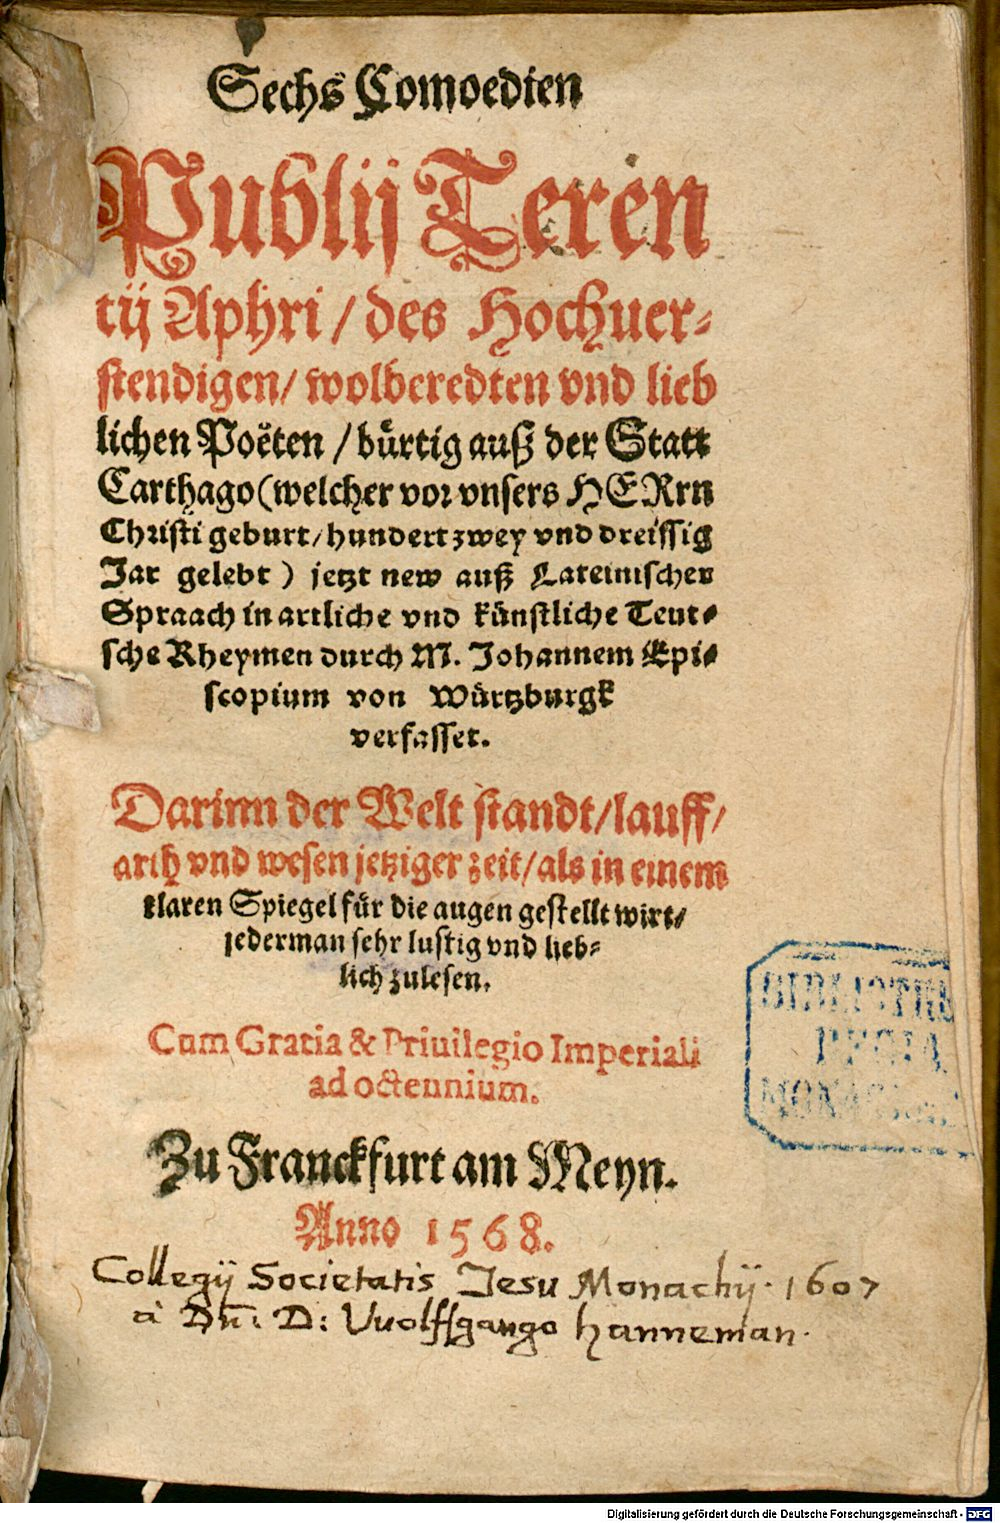 Sechs Comoedien
Publij Teren
tij Aphri / des Hochuer⸗
stendigen / wolberedten vnd lieb
lichen Poëten / bürtig auß der Statt
Carthago (welcher vor vnsers HERrn
Christi geburt / hundert zwey vnd dreissig
Jar gelebt) jetzt new auß Lateinischer
Spraach in artliche vnd künstliche Teut⸗
sche Rheymen durch M. Johannem Epi⸗
scopium von Würtzburgk
verfasset.
Darinn der Welt standt / lauff /
arth vnd wesen jetziger zeit / als in einem
klaren Spiegel für die augen gestellt wirt /
jederman sehr lustig vnd lieb⸗
lich zulesen.
BIBLIOTHE
REGIA
MONACENS
Cum Gratia & Priuilegio Imperiali
ad octennium.
Zu Franckfurt am Meyn.
Anno 1568.
Collegij Societatis Jesu Monachij. 1607
à Dn̄: D: Vuolffgango Hanneman.
Digitalisierung gefördert durch die Deutsche Forschungsgemeinschaft - DFG